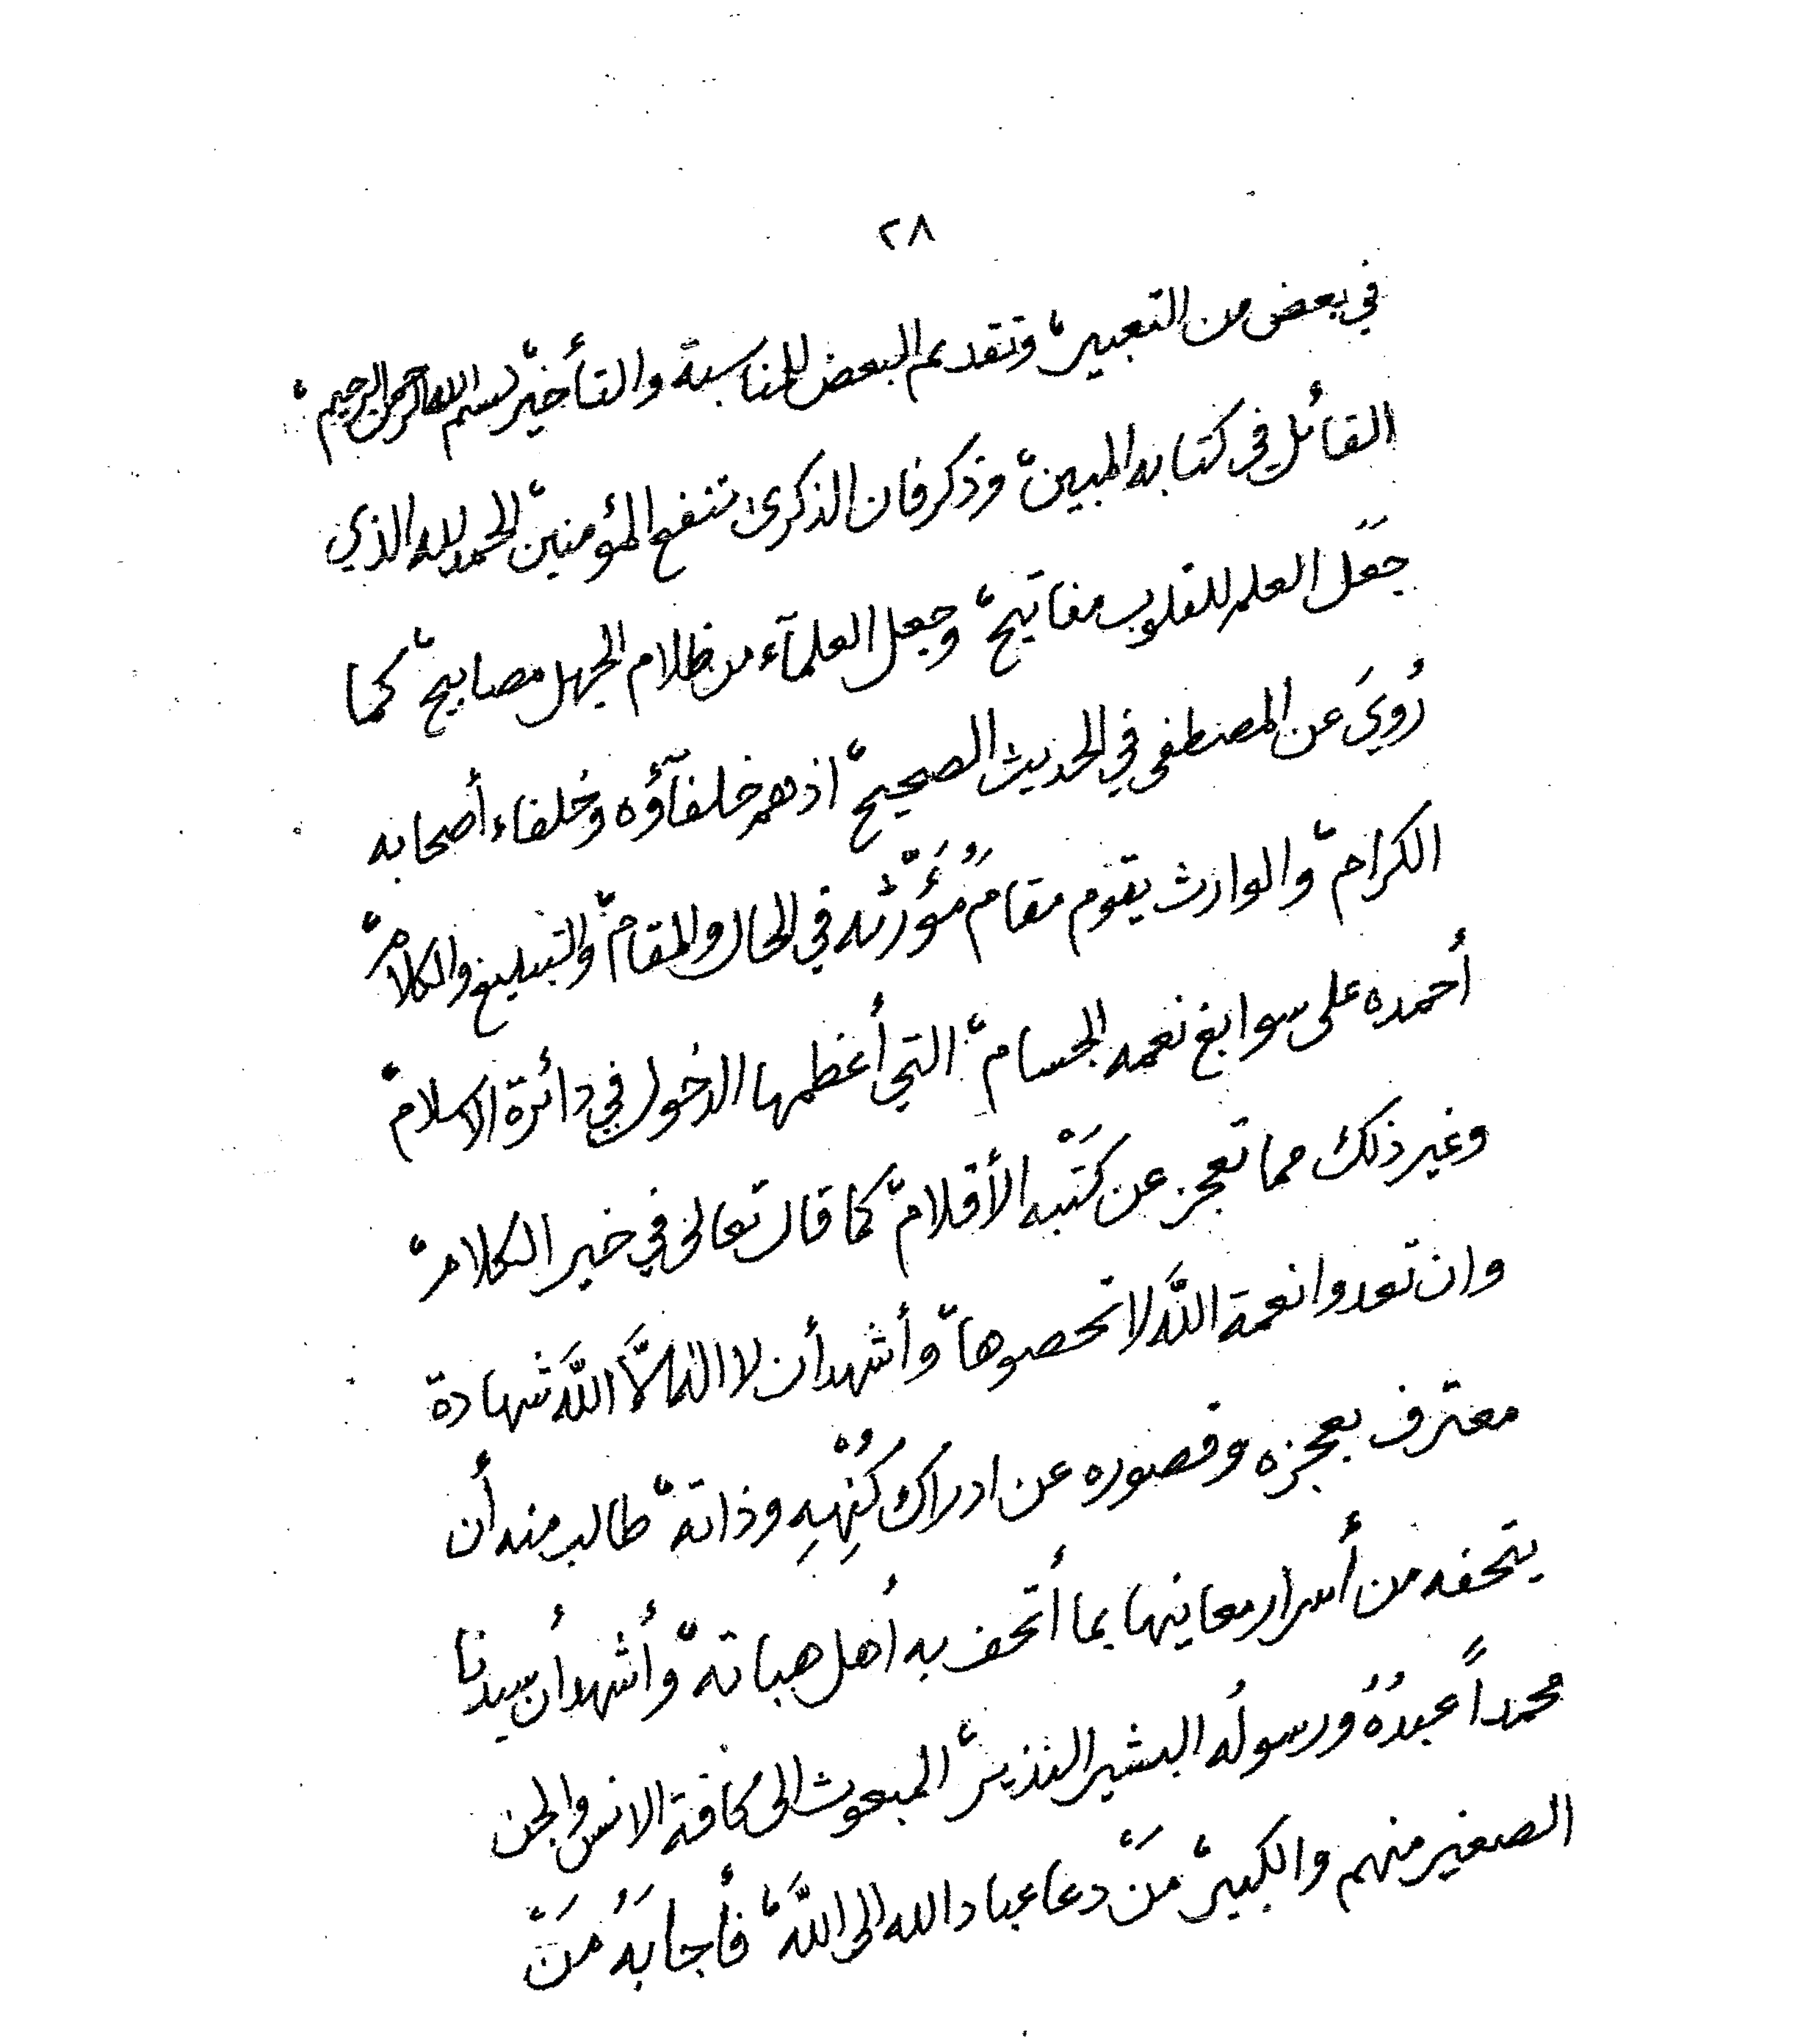 ٢٨
في بعض من التعبير، وتقديم البعض للمناسبة والتأخير، بسم الله الرحمن الرحيم،
القائل في كتابه المبين، وذكر فان الذكرى تنفع المؤمنين، الحمد لله الذي
جَعَل العلم للقلوب مفاتيح، وجعل العلمآء من ظلام الجهل مصابيح، كما
رُوِيَ عن المصطفى في الحديث الصحيح، اذ هم خلفآؤه وخلفاء أصحابه
الكرام، والوارث يقوم مقام مُؤَرِّثه في الحال والمقام، والتبليغ والكلام،
أحمده على سوابغ نعمه الجسام، التي أعظمها الدخول في دائرة الاسلام،
وغير ذلك مما تعجز عن كَتْبه الأقلام، كما قال تعالى في خير الكلام،
وان تعدوا نعمة اللَّه لا تحصوها، وأشهد أن لا اله الاَّ اللَّه شهادة
معترف بعجزه وقصوره عن ادراك كُنْهِهِ وذاته، طالب منه أن
يتحفه من أسرار معانيها بما أتحف به أهل هباته، وأشهد أن سيدنا
محمداً عبدُهُ ورسولُه البشير النذير، المبعوث الى كافة الانس والجن
الصغير منهم والكبير، مَنْ دعا عباد الله الى اللَّه، فأجابَهُ مَنْ